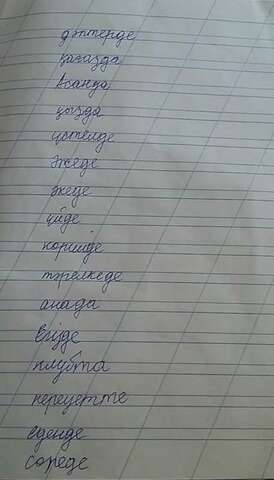 дәптерде
қағазда
Асанда
қызда
үстелде
Әжеде
әкеде
үйде
көршіде
тәрелкеде
анада
Бізде
клубта
кереуетте
еденде
сөреде